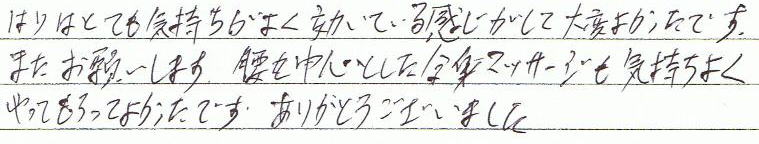 はりはとても気持ちがよく効いている感じがして大変よかったです。
またお願いします 腰を中心とした全身マッサージも気持ちよく
やってもらってよかったです。ありがとうございました